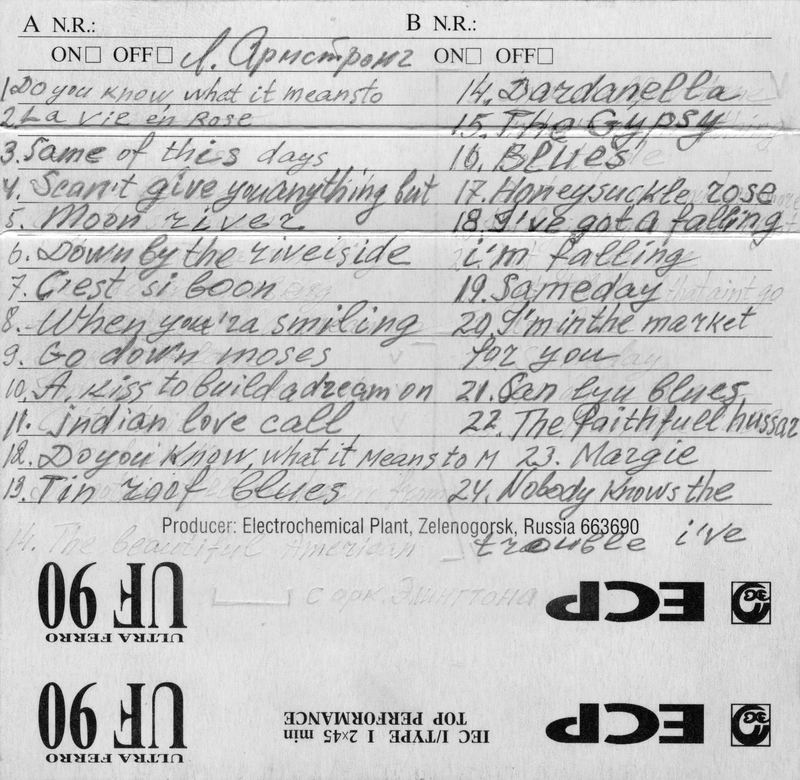 A N.R.:
B N.R.:
ON□ OFF□ Л. Армстронг
ON□ OFF□
1. Do you know, what it means to
2. La vie en Rose
3. Same of this days
4. Scan't give you anything but
5. Moon river
6. Down by the riveiside
7. C'est si boon
8. When you'ra smiling
9. Go down moses
10. A. Kiss to build a dream on
11. indian love call
12. Do you Know, what it Means to M
13. Tin roof blues
14. The beautiful American
14. Dardanella
15. The Gypsy
16. Blues
17. Honeysuckle rose
18. I've got a falling
i'm falling
19. Sameday
that aint go
20. I'm in the market
for you
21. San lyu blues
22. The faithfull hussar
23. Margie
24. Nobody knows the
trouble i've
Producer: Electrochemical Plant, Zelenogorsk, Russia 663690
с орк. Элингтона
UF 90
ULTRA FERRO
ECP
UF 90
ULTRA FERRO
IEC I/TYPE I 2×45 min
TOP PERFORMANCE
ECP